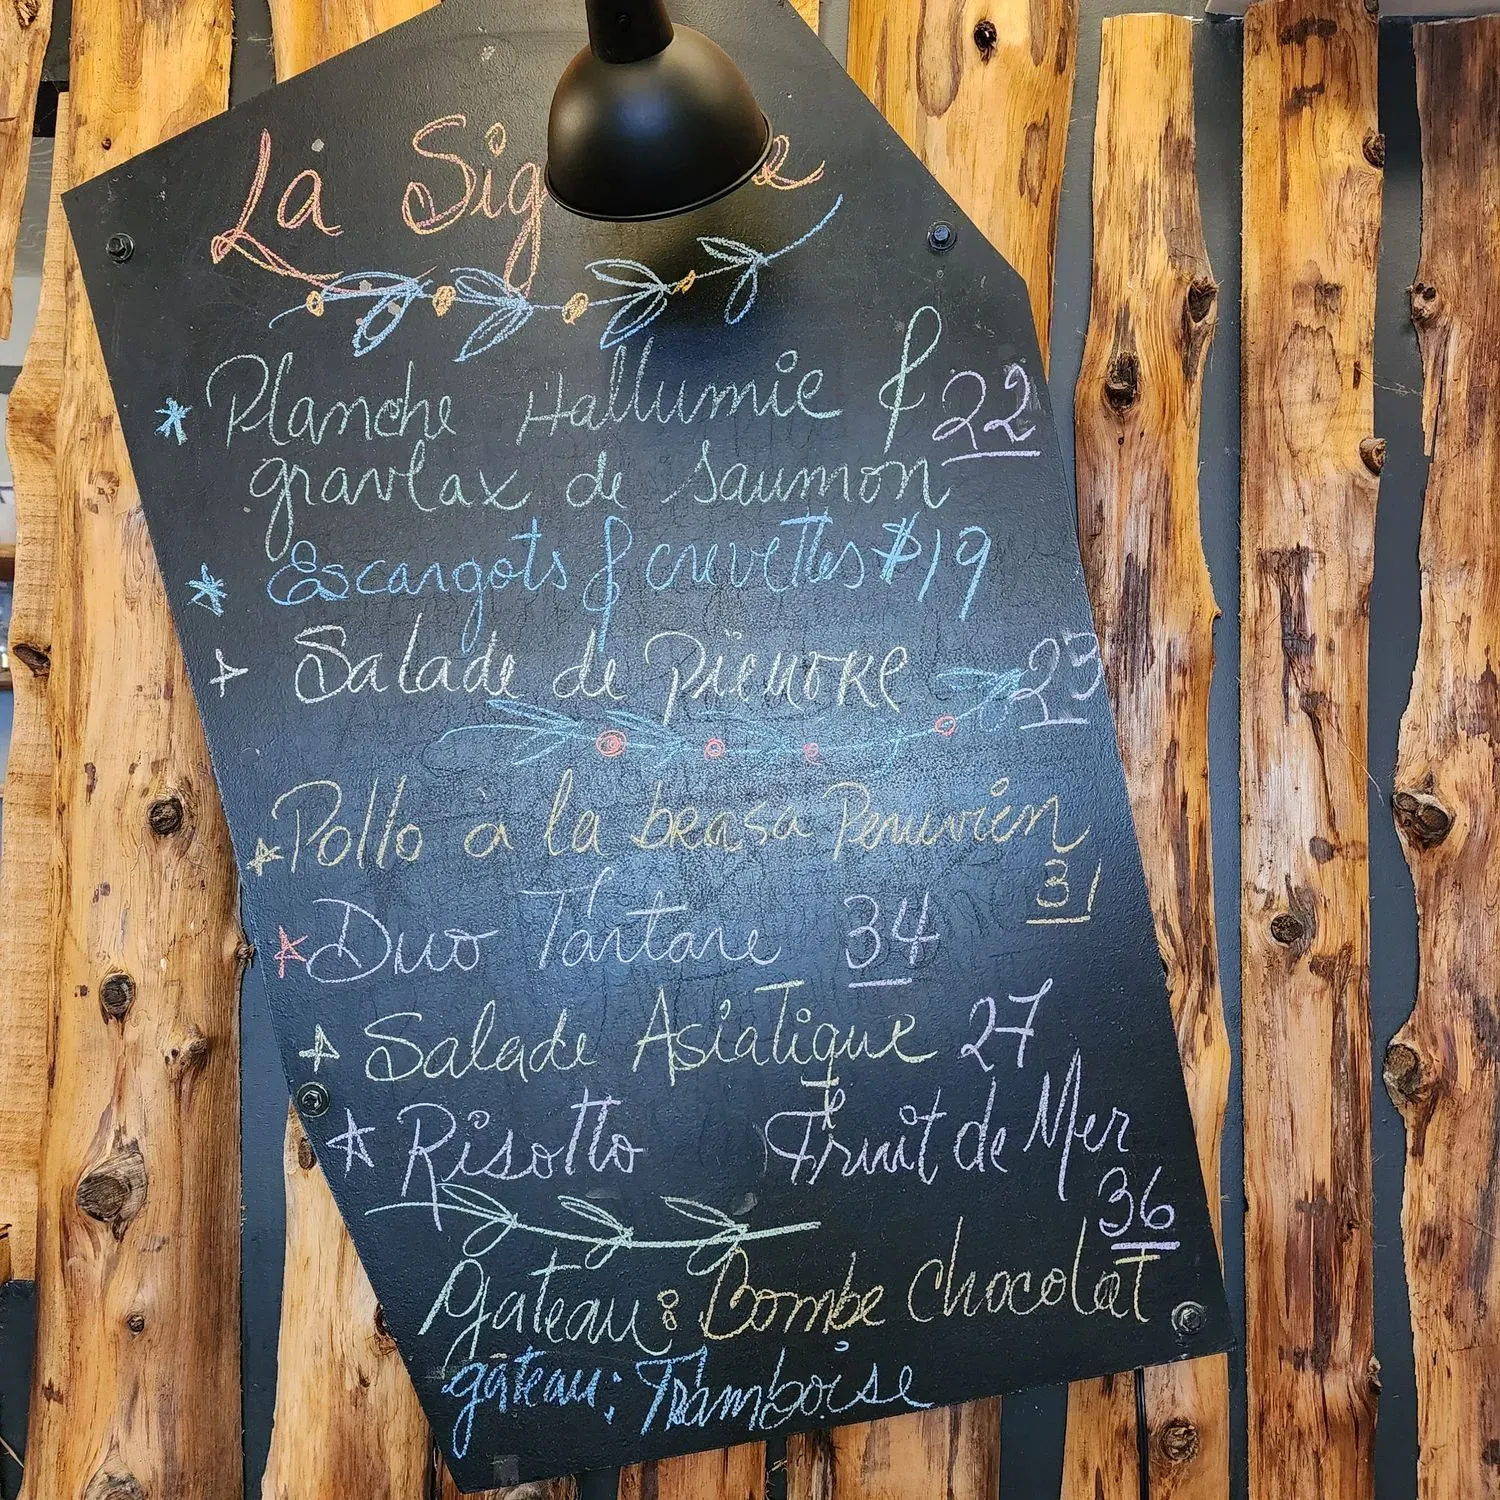 La Sig e
* Planche Hallumie & 22
gravlax de saumon
* Escargots & crevettes $19
Salade de pieuvre 23
Pollo a la brasa Peruvien
31
Duo Tartare 34
Salade Asiatique 27
Risotto Fruit de Mer
36
gateau: Bombe chocolat
gâteau: Framboise